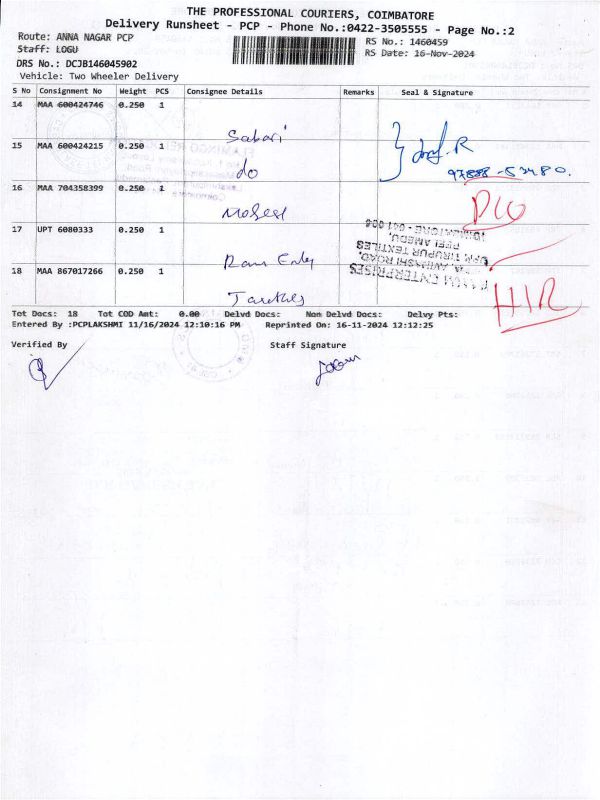 THE PROFESSIONAL COURIERS, COIMBATORE
Delivery Runsheet - PCP - Phone No.:0422-3505555 - Page No.:2
Route: ANNA NAGAR PCP
RS No.: 1460459
Staff: LOGU
RS Date: 16-Nov-2024
DRS No.: DCJB146045902
Vehicle: Two Wheeler Delivery
S No Consignment No Weight PCS Consignee Details Remarks Seal & Signature
14 MAA 600424746 0.250 1
Sabari
15 MAA 600424215 0.250 1
do
R
16 MAA 704358399 0.250 1
17 UPT 6080333 0.250 1
TIRUPUR TEXTILES
PEELAMEDU,
18 MAA 867017266 0.250 1
ENTERPRISES
HIR
Tot Docs: 18 Tot COD Amt: 0.00 Delvd Docs: Non Delvd Docs: Delvy Pts:
Entered By :PCPLAKSHMI 11/16/2024 12:10:16 PM Reprinted On: 16-11-2024 12:12:25
Verified By Staff Signature